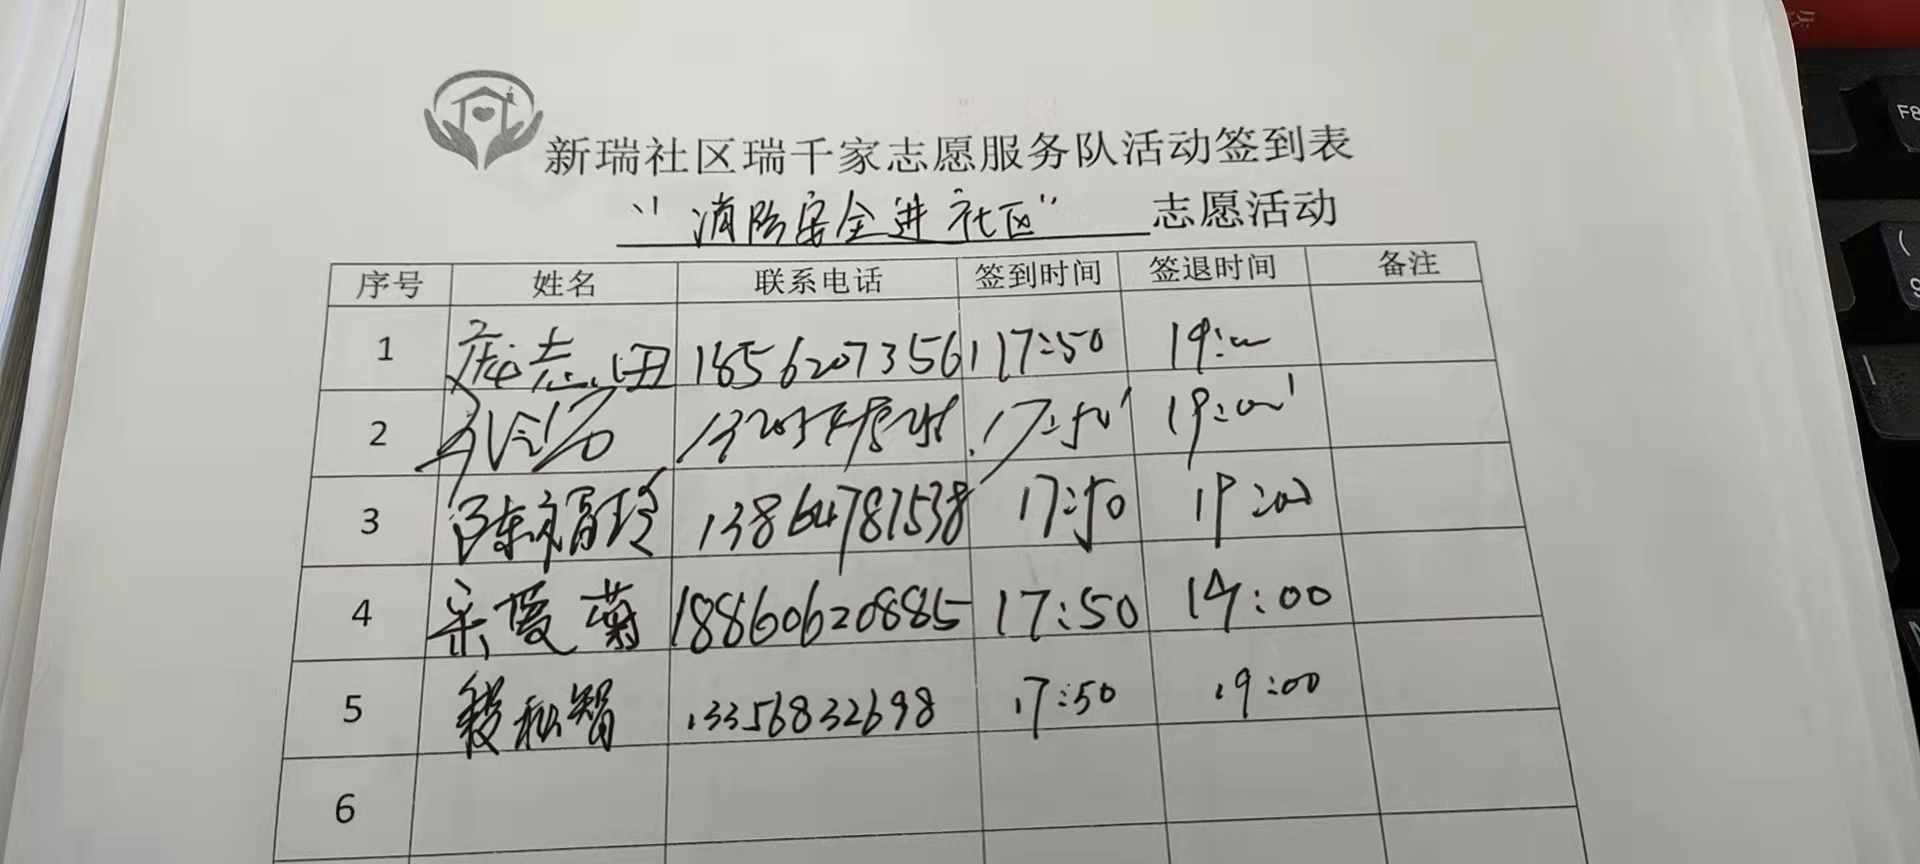 新瑞社区瑞千家志愿服务队活动签到表
“消防安全进社区” 志愿活动
序号 姓名 联系电话 签到时间 签退时间 备注
1 庞志 18562073561 17:50 19:00
2 17:50' 19:00'
3 陈福玲 13864787538 17:50 19:00
4 宋爱菊 18860620885 17:50 19:00
5 13356832698 17:50 19:00
6
F8
(
9